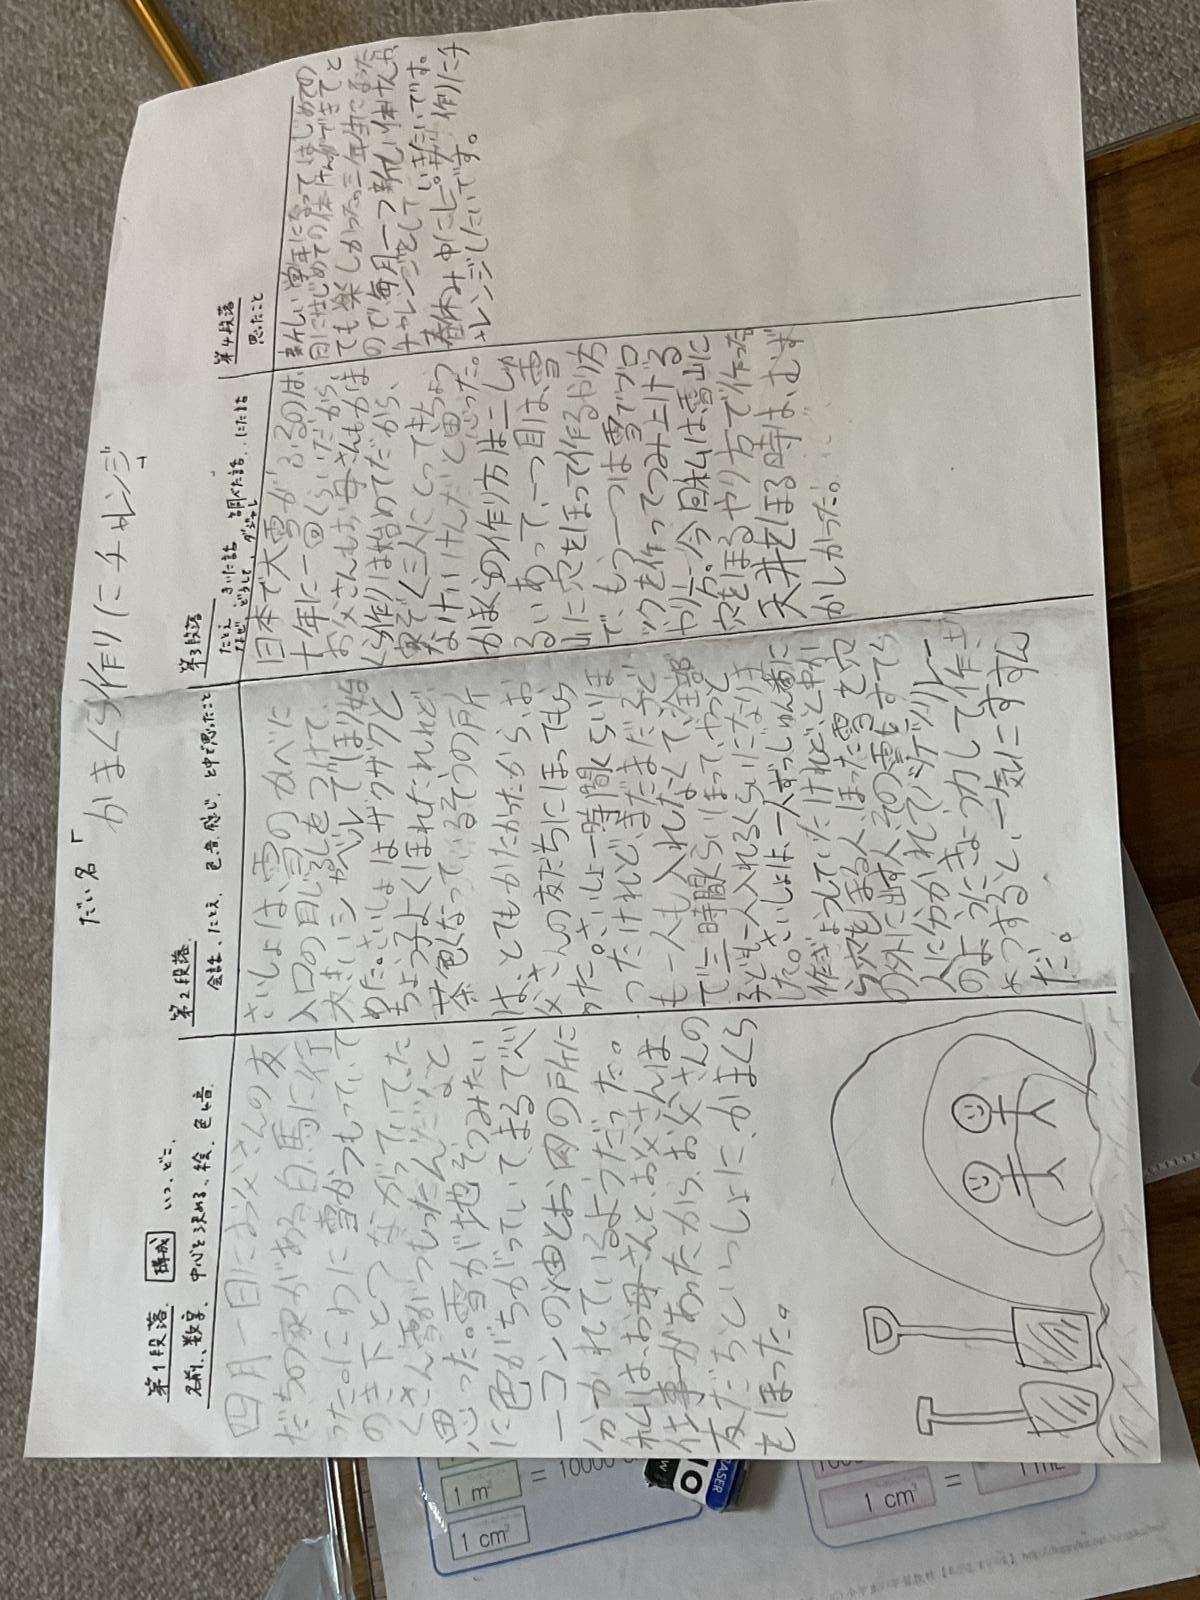 だい名「
かまくら作りにチャレンジ」
第1段落 構成 いつ、どこ、
名前、数字、中心を決める、絵、色、音
四月一日にお父さんの友
だちの家がある白馬に行
った。にわに雪がつもっていて
のき下とつながっていた。た
くさん雪がつもったんだなと
思った。雪が地そうみたい
に色がちがっていて、まるでべ
ーコンの油とお肉の所に
分かれているようだった。
私は、お母さんと、お父さんは
仕事があったから、お父さんの
友だちといっしょに、かまくら
をほった。
第2段落
会話、たとえ、色、音、感じ、と中で思ったこと
さいしょは、雪のかべに
入口の目じるしをつけて、
大きいシャベルでほり始
めた。さいしょはザクザクと
ちょう子よくほれたけれど、
茶色くなっているそうの所
は、とてもかたかったから、お
父さんの友だちにほってもら
った。さいしょ一時間くらいほ
ったけれど、まだまだ子ど
も一人も入れなくて、全部
で三時間くらいほって、やっと
子ども一人入れるくらいになりま
した。さいしょは、一人ずつじゅん番に
作ぎょうしていたけれど、と中か
ら穴をほる人、ほった雪を穴
の外に出す人、その雪をすてる
人に分かれてバケツリレー
のようにきょう力して作ぎ
ょうすると、一気にすすん
だ。
第3段落
たとえ きいた話 調べた話、にた話
なぜ どうして、ダジャレ
日本で大雪がふるのは、
十年に一回くらいだから、
お父さんもお母さんもかま
くら作りは始めてだから、
家ぞく三人にとってきちょう
なけいけんだと思った。
かまくらの作り方は二しゅ
るいあって、一つ目は、雪
山に穴をほって作るやり方
で、もう一つは雪でブロ
ックを作ってつみ上げる
やり方。今回私は雪山に
穴をほるやり方で作った。
天井をほる時は、むず
かしかった。
第4段落
思ったこと
新しい学年になってはじめての
日にはじめての体けんができてと
ても楽しかった。三年生になった
ので毎月一つ新しい体けんに
チャレンジをしていきたいです。
春休み中にピザ作りにチ
ャレンジしたいです。
1 m²
= 10000
1 cm²
1 cm²
=
1 mL
ERASER